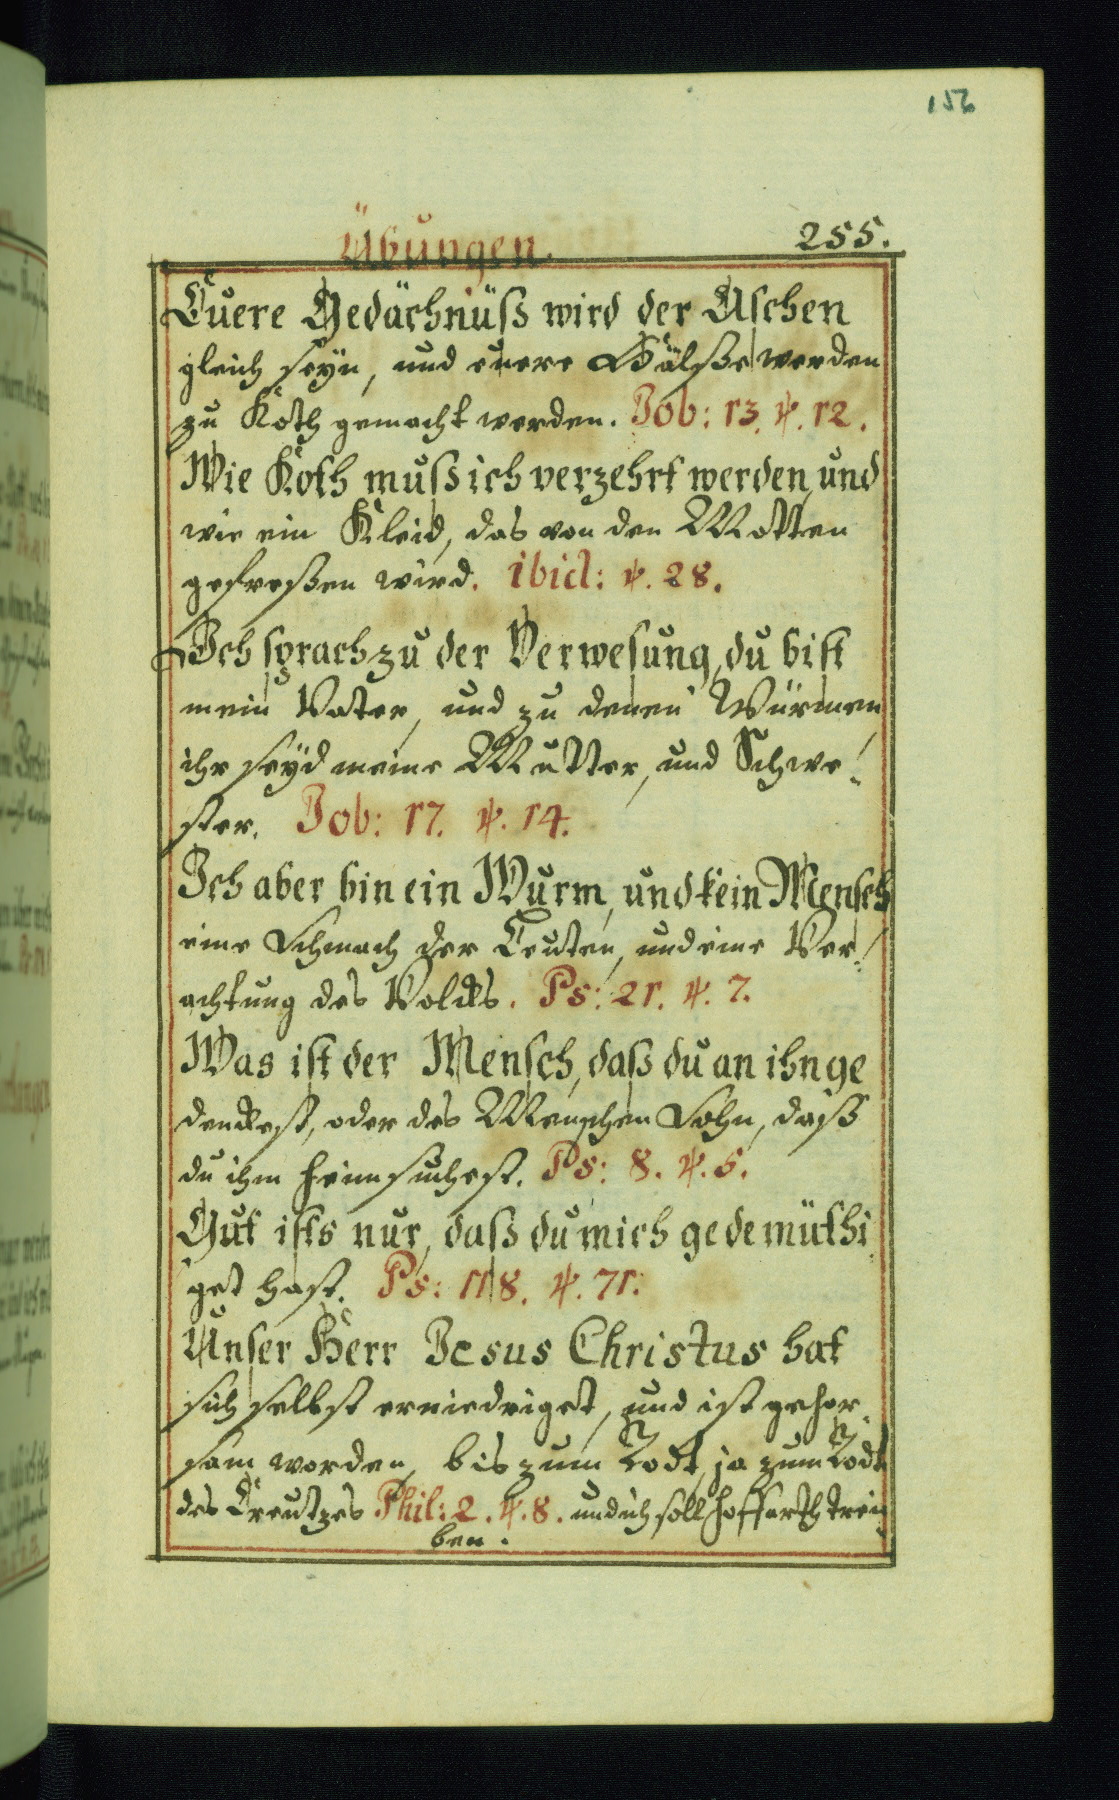 156
Übungen. 255.
Euere Gedächnüß wird der Aschen
gleich seyn, und euere Hälße werden
zu Koth gemacht werden. Job: 13. ℣. 12.
Wie Koth muß ich verzehrt werden, und
wie ein Kleid, das von den Motten
gefreßen wird. ibid: ℣. 28.
Ich sprach zu der Verwesung, du bist
mein Vater, und zu denen Würmen,
ihr seyd meine Mutter, und Schwe-
ster. Job: 17. ℣. 14.
Ich aber bin ein Wurm, und kein Mensch
eine Schmach der Leuten, und eine Ver-
achtung des Volcks. Ps: 21. ℣. 7.
Was ist der Mensch, daß du an ihn ge
denckest, oder des Menschen Sohn, daß
du ihm heimsuchest. Ps: 8. ℣. 5.
Gut ists nur, daß du mich gedemüthi
get hast. Ps: 118. ℣. 71.
Unser Herr Jesus Christus hat
sich selbst erniedriget, und ist gehor-
sam worden, bis zum Todt, ja zum Todt
des Creutzes Phil: 2. ℣. 8. und ich soll Hoffarth trei
ben.